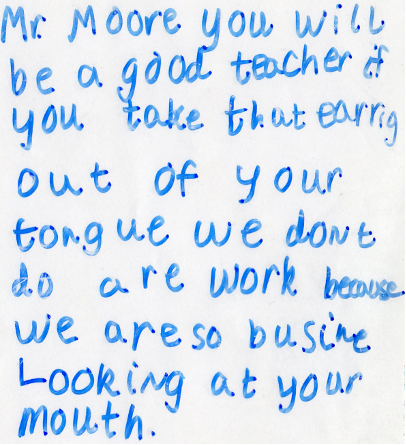 Mr. Moore you will
be a good teacher if
you take that earrig
out of your
tongue we dont
do are work because
we are so busine
Looking at your
mouth.